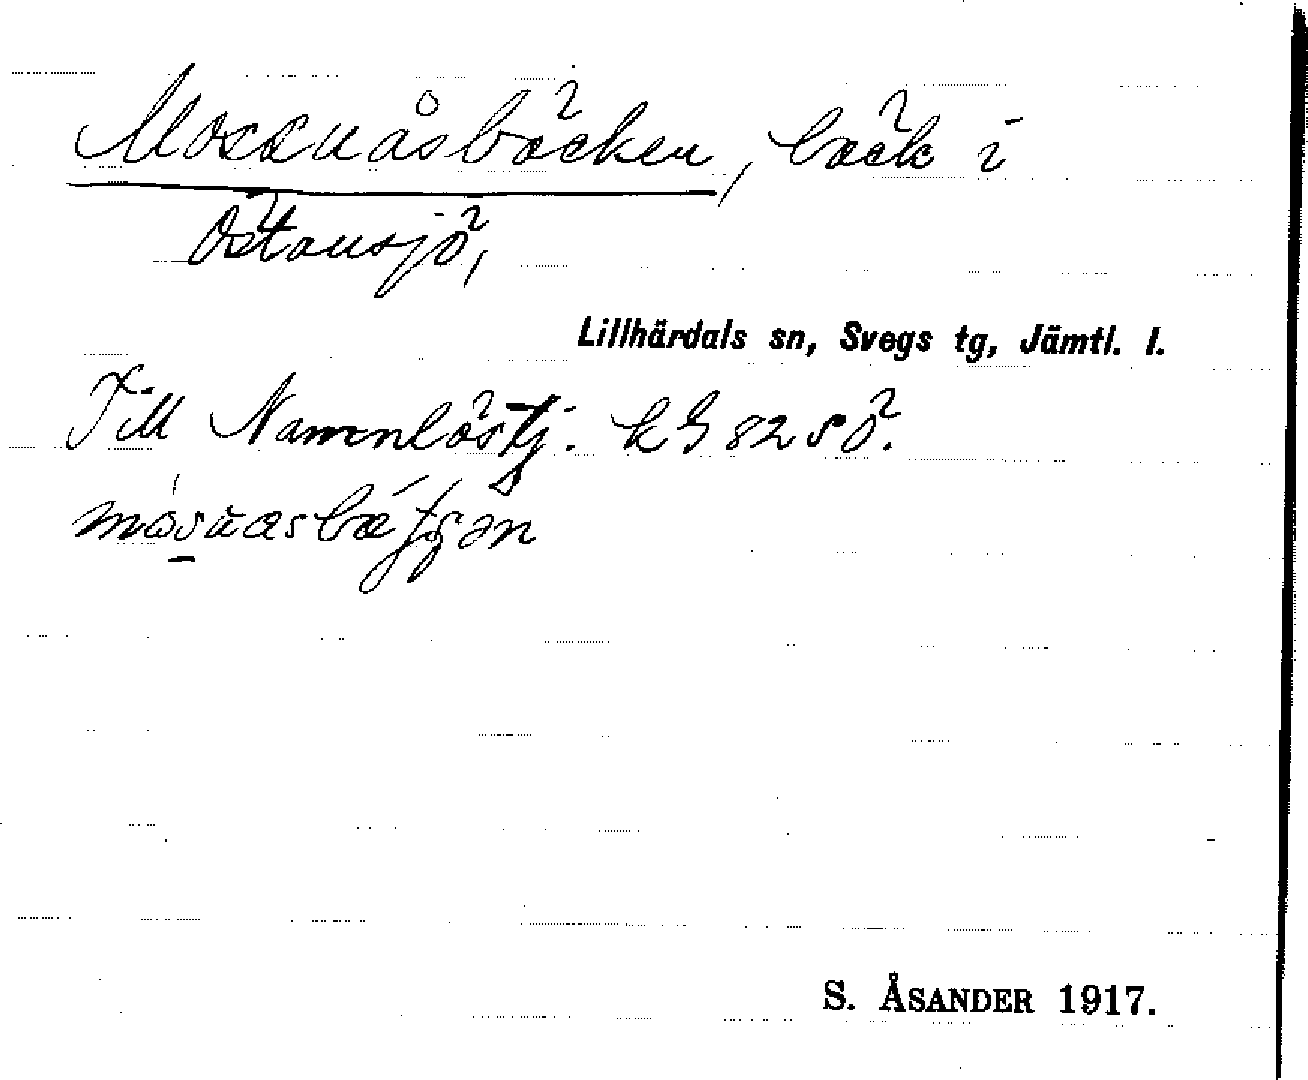 Mossnåsbäcken, bäck i
Östansjö,
Lillhärdals sn, Svegs tg, Jämtl. l.
Till Namnlöstj. kg 82 SÖ.
S. ÅSANDER 1917.